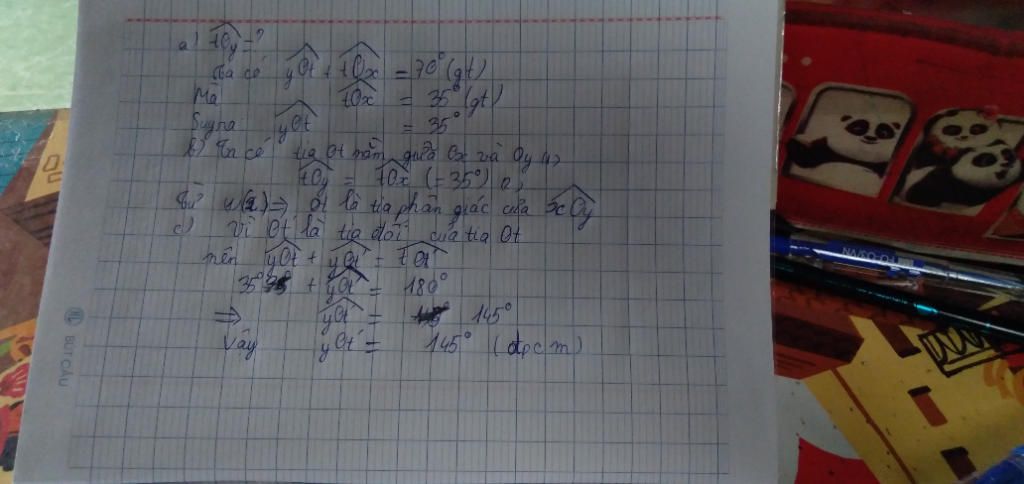 a) tOy = ?
Ta có yOt + tOx = 70° (gt)
Mà tOx = 35° (gt)
Suy ra yOt = 35°
b) Ta có tia Ot nằm giữa Ox và Oy
tOy = tOx (= 35°)
Từ ⇒ Ot là tia phân giác của xOy
c) Vì Ot' là tia đối của tia Ot
nên yOt + yOt' = tOt'
35° + yOt' = 180°
⇒ yOt' = 145°
Vậy yOt' = 145° (đpcm)
BÚT CẦU